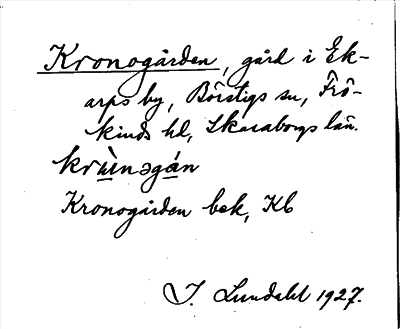 Kronogården, gård i Ek-
arps by, Börstigs sn, Frö-
kinds hd, Skaraborgs län.
krùnəgán
Kronogården bek, Kb
I. Lundahl 1927.